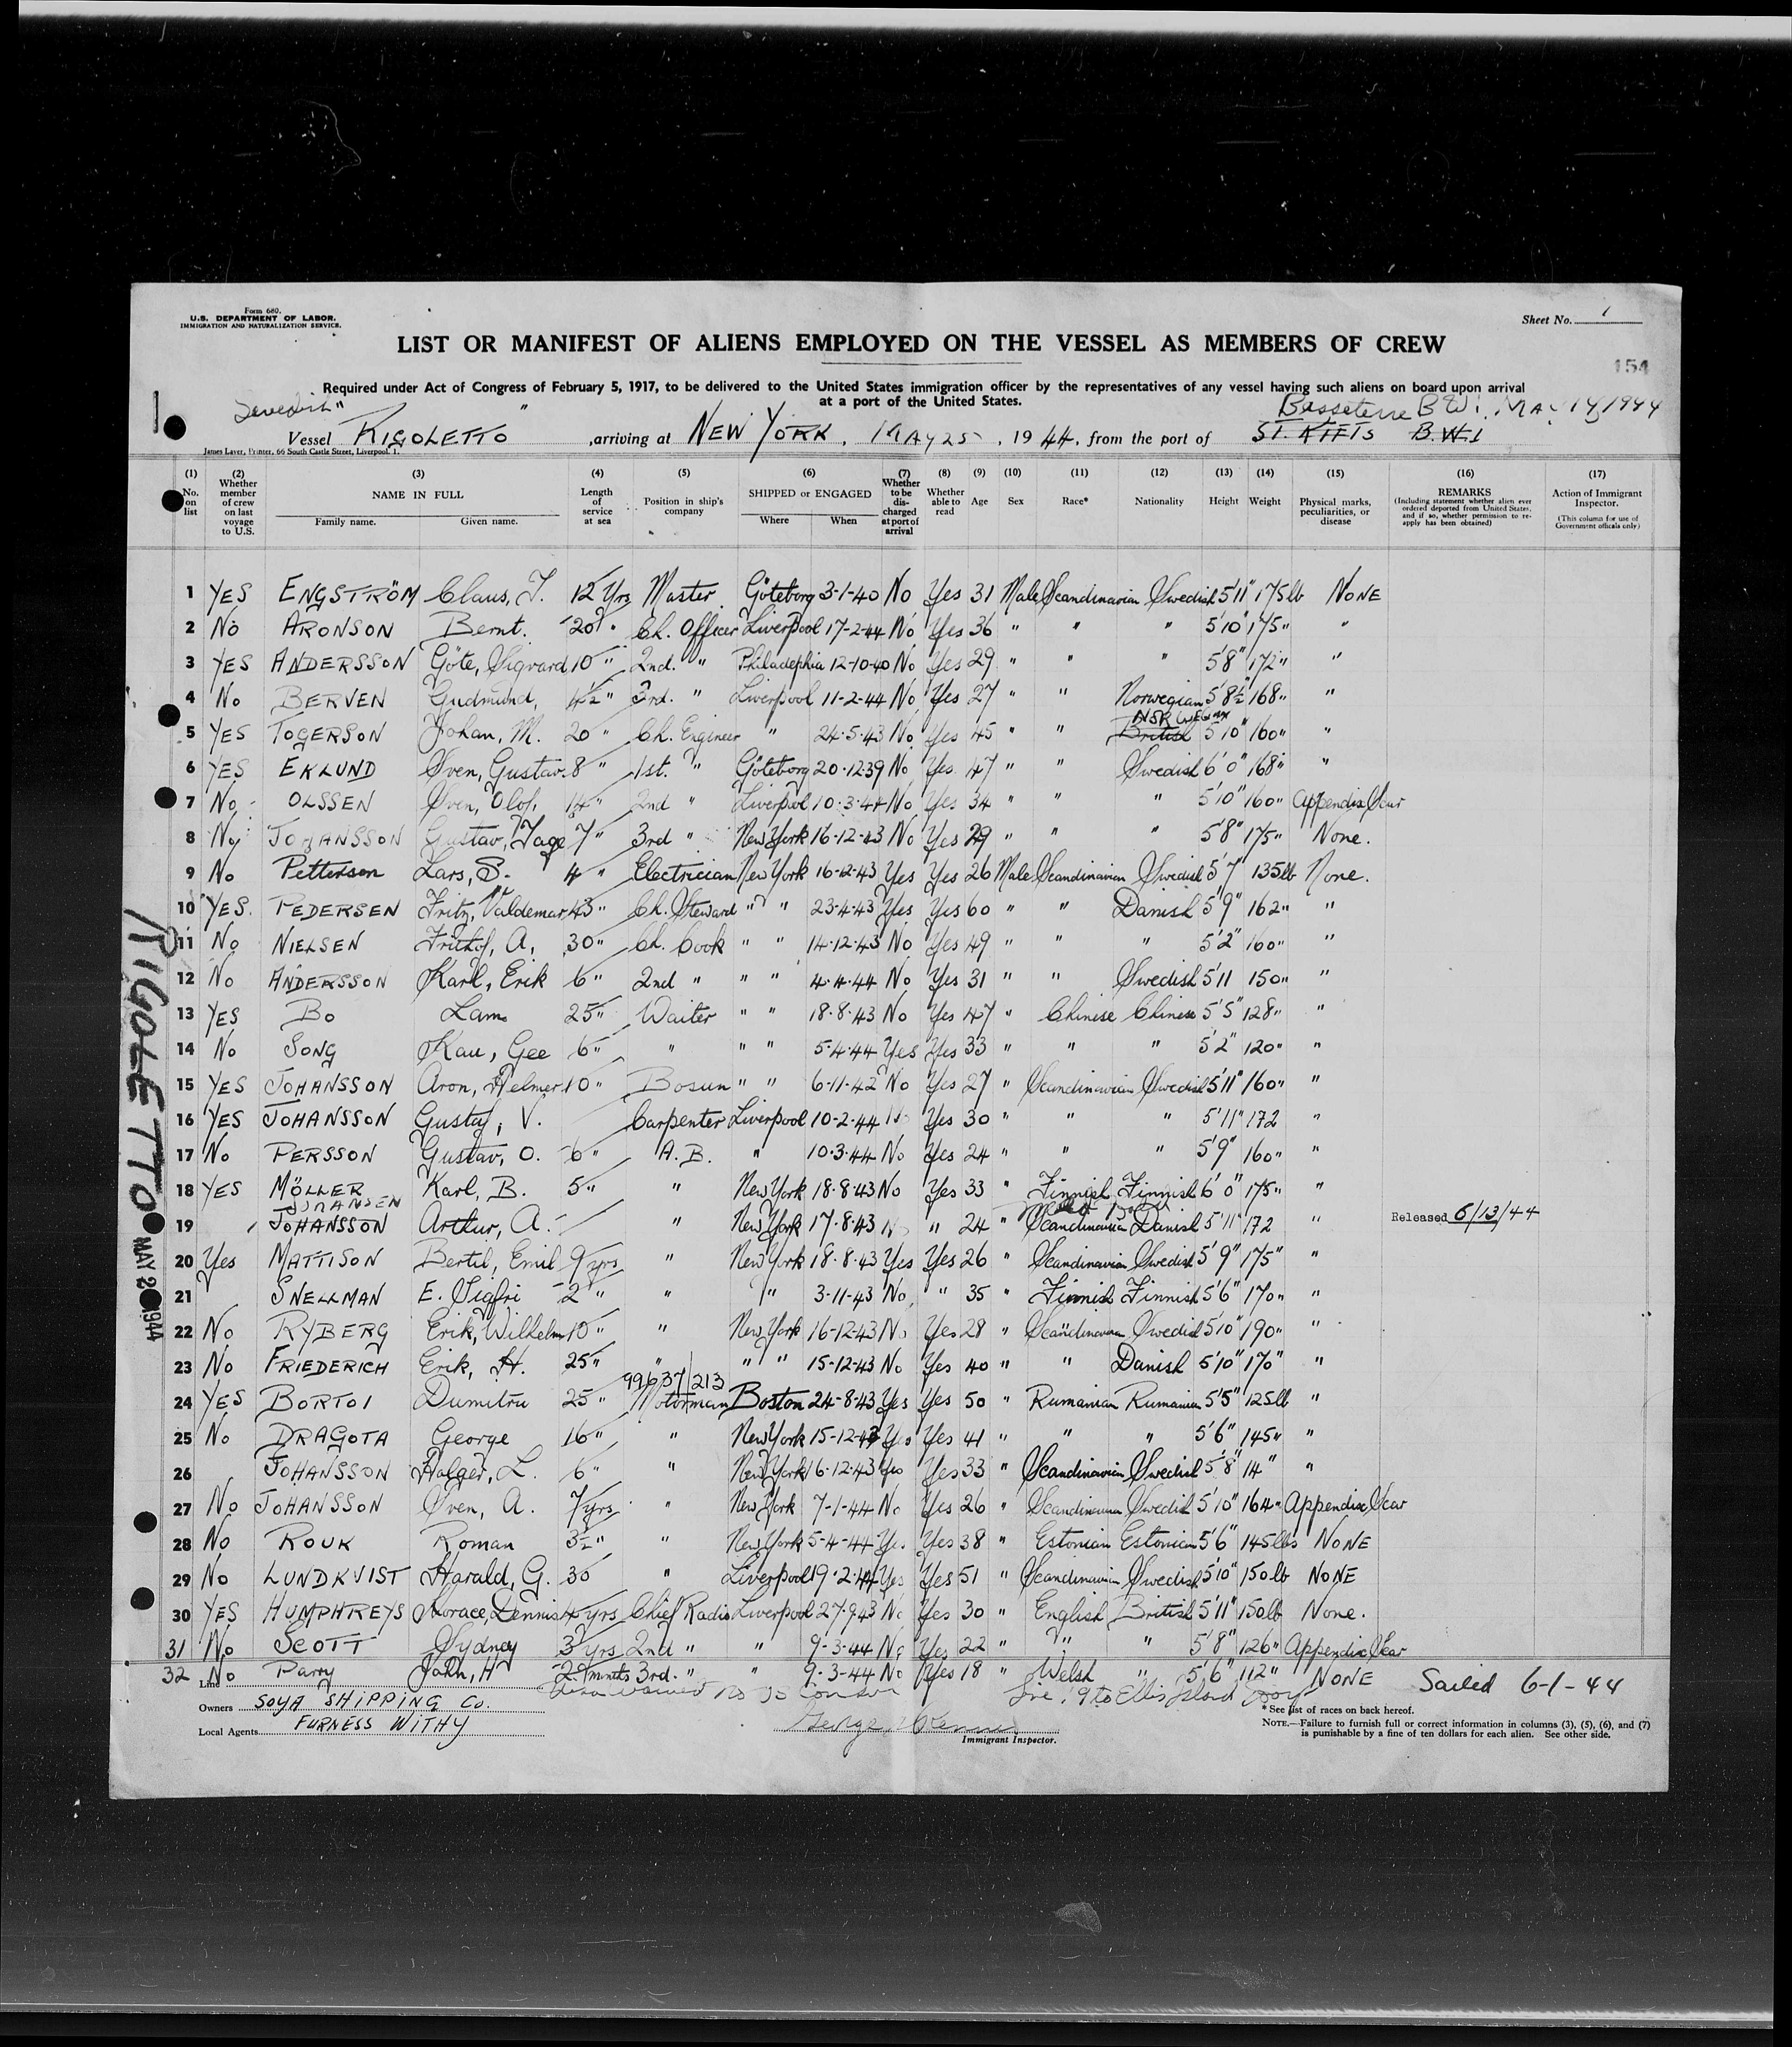 Form 680.
U.S. DEPARTMENT OF LABOR.
IMMIGRATION AND NATURALIZATION SERVICE.
Sheet No. 1
LIST OR MANIFEST OF ALIENS EMPLOYED ON THE VESSEL AS MEMBERS OF CREW
154
Required under Act of Congress of February 5, 1917, to be delivered to the United States immigration officer by the representatives of any vessel having such aliens on board upon arrival
at a port of the United States.
Swedish Basseterre B.W.I. MAY 14, 1944
Vessel RIGOLETTO, arriving at NEW YORK, MAY 25, 1944, from the port of ST. KITTS B.W.I
James Laver, Printer, 66 South Castle Street, Liverpool, 1.
(1) No. on list
(2) Whether member of crew on last voyage to U.S.
(3) NAME IN FULL Family name. Given name.
(4) Length of service at sea
(5) Position in ship's company
(6) SHIPPED or ENGAGED Where When
(7) Whether to be discharged at port of arrival
(8) Whether able to read
(9) Age
(10) Sex
(11) Race*
(12) Nationality
(13) Height
(14) Weight
(15) Physical marks, peculiarities, or disease
(16) REMARKS (Including statement whether alien ever ordered deported from United States, and if so, whether permission to re-apply has been obtained)
(17) Action of Immigrant Inspector. (This column for use of Government officials only)
1 YES ENGSTRÖM Claus, T. 12 Yrs Master Göteborg 3-1-40 No Yes 31 Male Scandinavian Swedish 5'11" 175lb NONE
2 No ARONSON Bernt. 20 " Ch. Officer Liverpool 17-2-44 No Yes 36 " " " 5'10" 175 " "
3 YES ANDERSSON Göte, Sigvard 10 " 2nd. " Philadephia 12-10-40 No Yes 29 " " " 5'8" 172 " "
4 No BERVEN Gudmund, 4½ " 3rd. " Liverpool 11-2-44 No Yes 27 " " Norwegian 5'8½" 168 " "
5 YES TOGERSON Johan, M. 20 " Ch. Engineer " 24.5.43 No Yes 45 " " British Norwegian 5'10" 160 " "
6 YES EKLUND Sven, Gustav. 8 " 1st. " Göteborg 20.12.39 No Yes 47 " " Swedish 6'0" 168 " "
7 No OLSSEN Sven, Olof, 14 " 2nd " Liverpool 10.3.44 No Yes 34 " " " 5'10" 160 " Appendix Scar
8 No JOHANSSON Gustav, Tage 7 " 3rd " New York 16-12-43 No Yes 29 " " " 5'8" 175 " None.
9 No Petterson Lars, S. 4 " Electrician New York 16-12-43 Yes Yes 26 Male Scandinavian Swedish 5'7" 135lb None.
10 YES. PEDERSEN Fritz, Valdemar 43 " Ch. Steward " " 23.4.43 Yes Yes 60 " " Danish 5'9" 162 " "
11 No NIELSEN Frithof, A. 30 " Ch. Cook " " 14.12.43 No Yes 49 " " " 5'2" 160 " "
12 No ANDERSSON Karl, Erik 6 " 2nd " " " 4.4.44 No Yes 31 " " Swedish 5'11 150 " "
13 YES Bo Lam 25 " Waiter " " 18.8.43 No Yes 47 " Chinese Chinese 5'5" 128 " "
14 No SONG Kau, Gee 6 " " " " 5.4.44 Yes Yes 33 " " " 5'2" 120 " "
15 YES JOHANSSON Aron, Helmer 10 " Bosun " " 6-11-42 No Yes 27 " Scandinavian Swedish 5'11" 160 " "
16 YES JOHANSSON Gustaf, V. Carpenter Liverpool 10-2-44 No Yes 30 " " " 5'11" 172 "
17 No PERSSON Gustav, O. 6 " A.B. " 10.3.44 No Yes 24 " " " 5'9" 160 " "
18 YES MÖLLER Karl, B. 5 " " New York 18.8.43 No Yes 33 " Finnish Finnish 6'0" 175 " "
JOHANSEN
19 JOHANSSON Arthur, A. " New York 17.8.43 No " 24 " Scandinavian Danish 5'11" 172 " Released 6/13/44
20 Yes MATTISON Bertil, Emil 9 yrs " New York 18.8.43 Yes Yes 26 " Scandinavian Swedish 5'9" 175 " "
21 SNELLMAN E. Sigfri 2 " " " 3-11-43 No " 35 " Finnish Finnish 5'6" 170 " "
22 No RYBERG Erik, Wilhelm 10 " " New York 16-12-43 No Yes 28 " Scandinavian Swedish 5'10" 190 " "
23 No FRIEDERICH Erik, H. 25 " " " " 15-12-43 No Yes 40 " " Danish 5'10" 170 " "
99637/213
24 YES BORTOI Dumitru 25 " Motorman Boston 24-8-43 Yes Yes 50 " Rumanian Rumanian 5'5" 125lb "
25 No DRAGOTA George 16 " " New York 15-12-43 Yes Yes 41 " " " 5'6" 145 " "
26 JOHANSSON Holger, L. 6 " " New York 16-12-43 Yes Yes 33 " Scandinavian Swedish 5'8" 14 " "
27 No JOHANSSON Sven, A. 7 yrs " New York 7-1-44 No Yes 26 " Scandinavian Swedish 5'10" 164 " Appendix Scar
28 No ROUK Roman 3½ " " New York 5-4-44 Yes Yes 38 " Estonian Estonian 5'6" 145lbs NONE
29 No LUNDKVIST Harald, G. 30 " Liverpool 19.2.44 Yes Yes 51 " Scandinavian Swedish 5'10" 150lb NONE
30 YES HUMPHREYS Horace, Dennis 4 yrs Chief Radio Liverpool 27.9.43 No Yes 30 " English British 5'11" 150lb None.
31 No SCOTT Sydney 3 yrs 2nd " " 9-3-44 No Yes 22 " " " 5'8" 126 " Appendix Scar
32 No Parry John, H 2 mnts 3rd. " " 9-3-44 No Yes 18 " Welsh " 5'6" 112 " NONE Sailed 6-1-44
Line
Line 19 to Ellis Island
Owners SOYA SHIPPING Co.
Local Agents FURNESS WITHY
George
Immigrant Inspector.
* See list of races on back hereof.
NOTE.—Failure to furnish full or correct information in columns (3), (5), (6), and (7)
is punishable by a fine of ten dollars for each alien. See other side.
RIGOLETTO MAY 2 1944